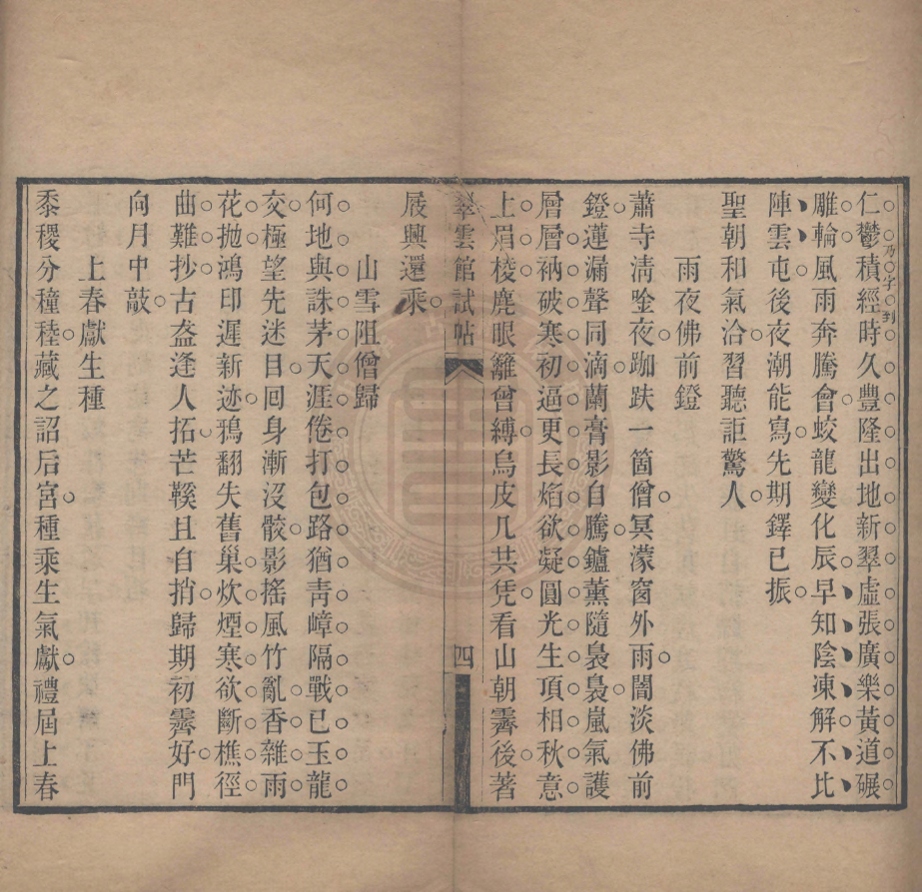 仁鬱積經時久豐隆出地新翠虛張廣樂黃道碾
乃字到
雕輪風雨奔騰會蛟龍變化辰早知陰凍解不比
陣雲屯後夜潮能寫先期鐸已振
聖朝和氣洽習聽詎驚人
雨夜佛前鐙
蕭寺淸陰夜跏趺一箇僧冥濛窗外雨闇淡佛前
鐙蓮漏聲同滴蘭膏影自騰鑪薰隨裊裊嵐氣護
層層衲破寒初逼更長焰欲凝圓光生頂相秋意
上眉棱麂眼籬曾縛烏皮几共凭看山朝霽後著
屐興還乘
翠雲館試帖
四
山雪阻僧歸
何地與誅茅天涯倦打包路猶靑嶂隔戰已玉龍
交極望先迷目回身漸沒骹影搖風竹亂香雜雨
花拋鴻印遲新迹鴉翻失舊巢炊煙寒欲斷樵徑
曲難抄古盋逢人拓芒鞵且自捎歸期初霽好門
向月中敲
上春獻生種
黍稷分穜稑藏之詔后宮種乘生氣獻禮屆上春